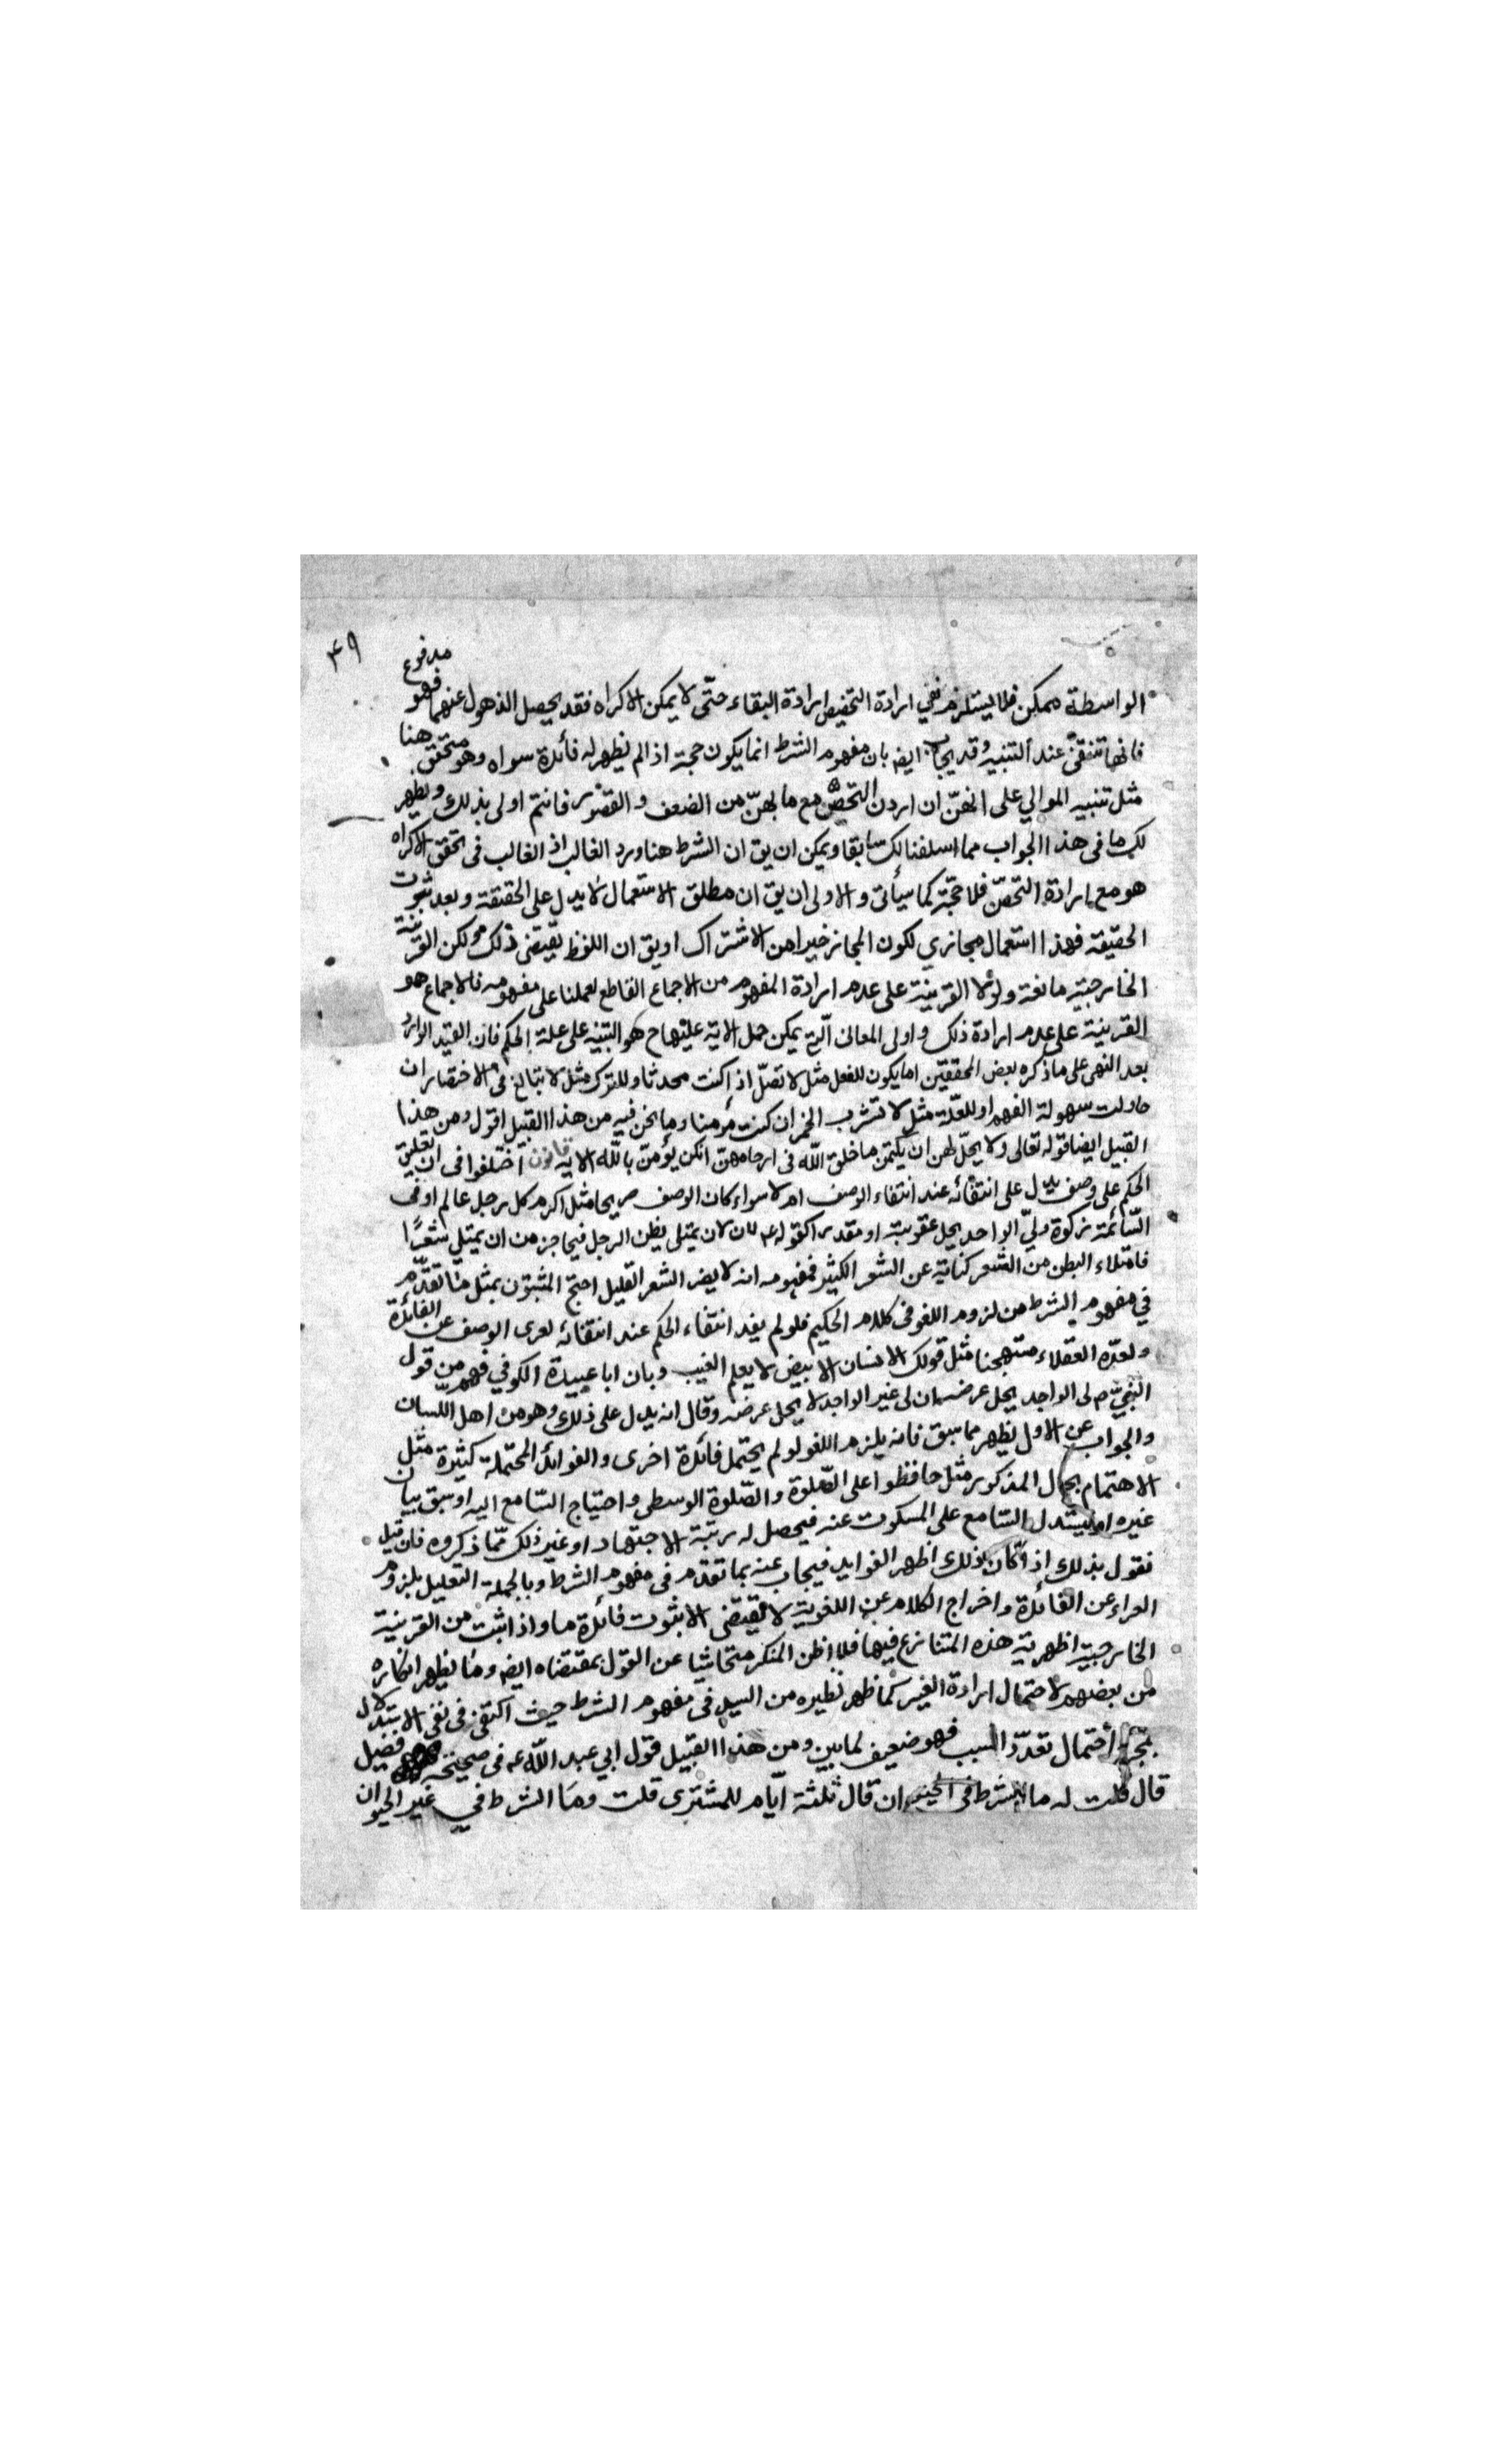 ۴۹
الواسطة ممكن فلا يستلزم نفي ارادة التحصن ارادة البقاء حتّى لا يمكن الاكراه فقد يحصل الذهول عنهما فهو مدفوع
فانها تنتفى عند التنبيه وقد يجاب ايضا بان مفهوم الشرط انما يكون حجة اذا لم يظهر له فائدة سواه وهو متحقق هنا
مثل تنبيه الموالي على انهنّ ان اردن التحصّن مع ما بهنّ من الضعف والقصور فانتم اولى بذلك ويظهر
لك ما فى هذا الجواب مما اسلفنا لك سابقا ويمكن ان يق ان الشرط هنا ورد الغالب اذ الغالب فى تحقق الاكراه
هو مع ارادة التحصّن فلا حجّة كما سيأتى والاولى ان يق ان مطلق الاستعمال لا يدل على الحقيقة وبعد ثبوت
الحقيقة فهذا استعمال مجازي لكون المجاز خيرا من الاشتراك او يق ان اللفظ يقتضى ذلك ولكن القرينة
الخارجية مانعة ولولا القرينة على عدم ارادة المفهوم من الاجماع القاطع لعملنا على مفهومه فالاجماع هو
القرينة على عدم ارادة ذلك واولى المعانى الّتى يمكن حمل الاية عليها ح هو التنبيه على علة الحكم فان القيد الوارد
بعد النهى على ما ذكره بعض المحققين اما يكون للفعل مثل لا تصلّ اذا كنت محدثا او للترك مثل لا تبالغ فى الاختصار ان
حاولت سهولة الفهم او للعلّة مثل لا تشرب الخمر ان كنت مؤمنا وما نحن فيه من هذا القبيل اقول ومن هذا
القبيل ايضا قوله تعالى ولا يحلّ لهن ان يكتمن ما خلق اللّه فى ارحامهنّ ان كن يؤمنّ باللّه الاية قانون اختلفوا فى ان تعليق
الحكم على وصف يدل على انتفائه عند انتفاء الوصف ام لا سواء كان الوصف صريحا مثل اكرم كل رجل عالم او فى
السّائمة زكوة وليّ الواجد يحل عقوبته او مقدرا كقوله ع لان يمتلى بطن الرجل قيحا خير من ان يمتلى شعرًا
فامتلاء البطن من الشعر كناية عن الشعر الكثير فمفهومه انه لا يضر الشعر القليل احتج المثبتون بمثل ما تقدّم
في مفهوم الشرط من لزوم اللغو فى كلام الحكيم فلو لم يفد انتفاء الحكم عند انتفائه لعرى الوصف عن الفائدة
ولعدّه العقلاء مستهجنا مثل قولك الانسان الابيض لا يعلم الغيب وبان ابا عبيدة الكوفي فهم من قول
النبيّ ص لى الواجد يحل عرضه ان لى غير الواجد لا يحل عرضه وقال انه يدل على ذلك وهو من اهل اللّسان
والجواب عن الاول يظهر مما سبق فانه يلزم اللغو لو لم يحتمل فائدة اخرى والفوائد المحتملة كثيرة مثل
الاهتمام بحال المذكور مثل حافظوا على الصّلوة والصّلوة الوسطى واحتياج السّامع اليه او سبق بيان
غيره او ليستدل السّامع على المسكوت عنه فيحصل له رتبة الاجتهاد او غير ذلك ممّا ذكروه فان قيل
نقول بذلك اذا كان ذلك اظهر الفوايد فيجاب عنه بما تقدم فى مفهوم الشرط وبالجملة التعليل بلزوم
العراء عن الفائدة واخراج الكلام عن اللغوية لا يقتضى الا بثبوت فائدة ما واذا ثبت من القرينة
الخارجية اظهرية هذه المتنازع فيها فلا اظن المنكر متحاشيا عن القول بمقتضاه ايضا وما يظهر انكاره
من بعضهم لاحتمال ارادة الغير كما ظهر نظيره من السيد فى مفهوم الشرط حيث اكتفى فى نفى الاستدلال
بمجرد احتمال تعدّد السبب فهو ضعيف لما بين ومن هذا القبيل قول ابي عبد اللّه ع فى صحيحة فضيل
قال قلت له ما الشرط فى الحيوان قال ثلثة ايّام للمشترى قلت وما الشرط في غير الحيوان